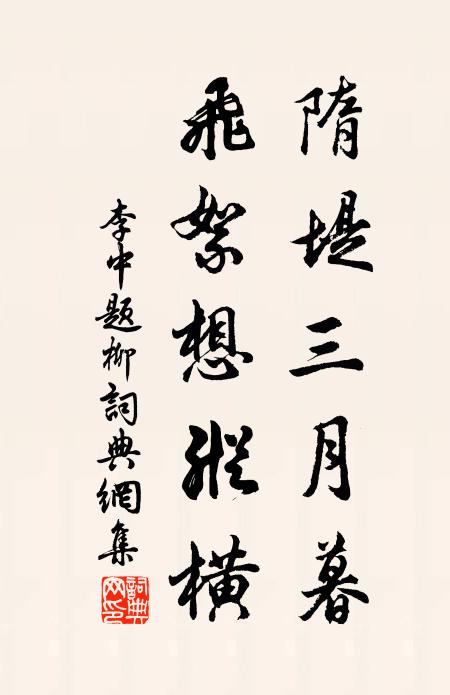 隋堤三月暮
飛絮想縱橫
李中題柳詞典網集
詞典网印